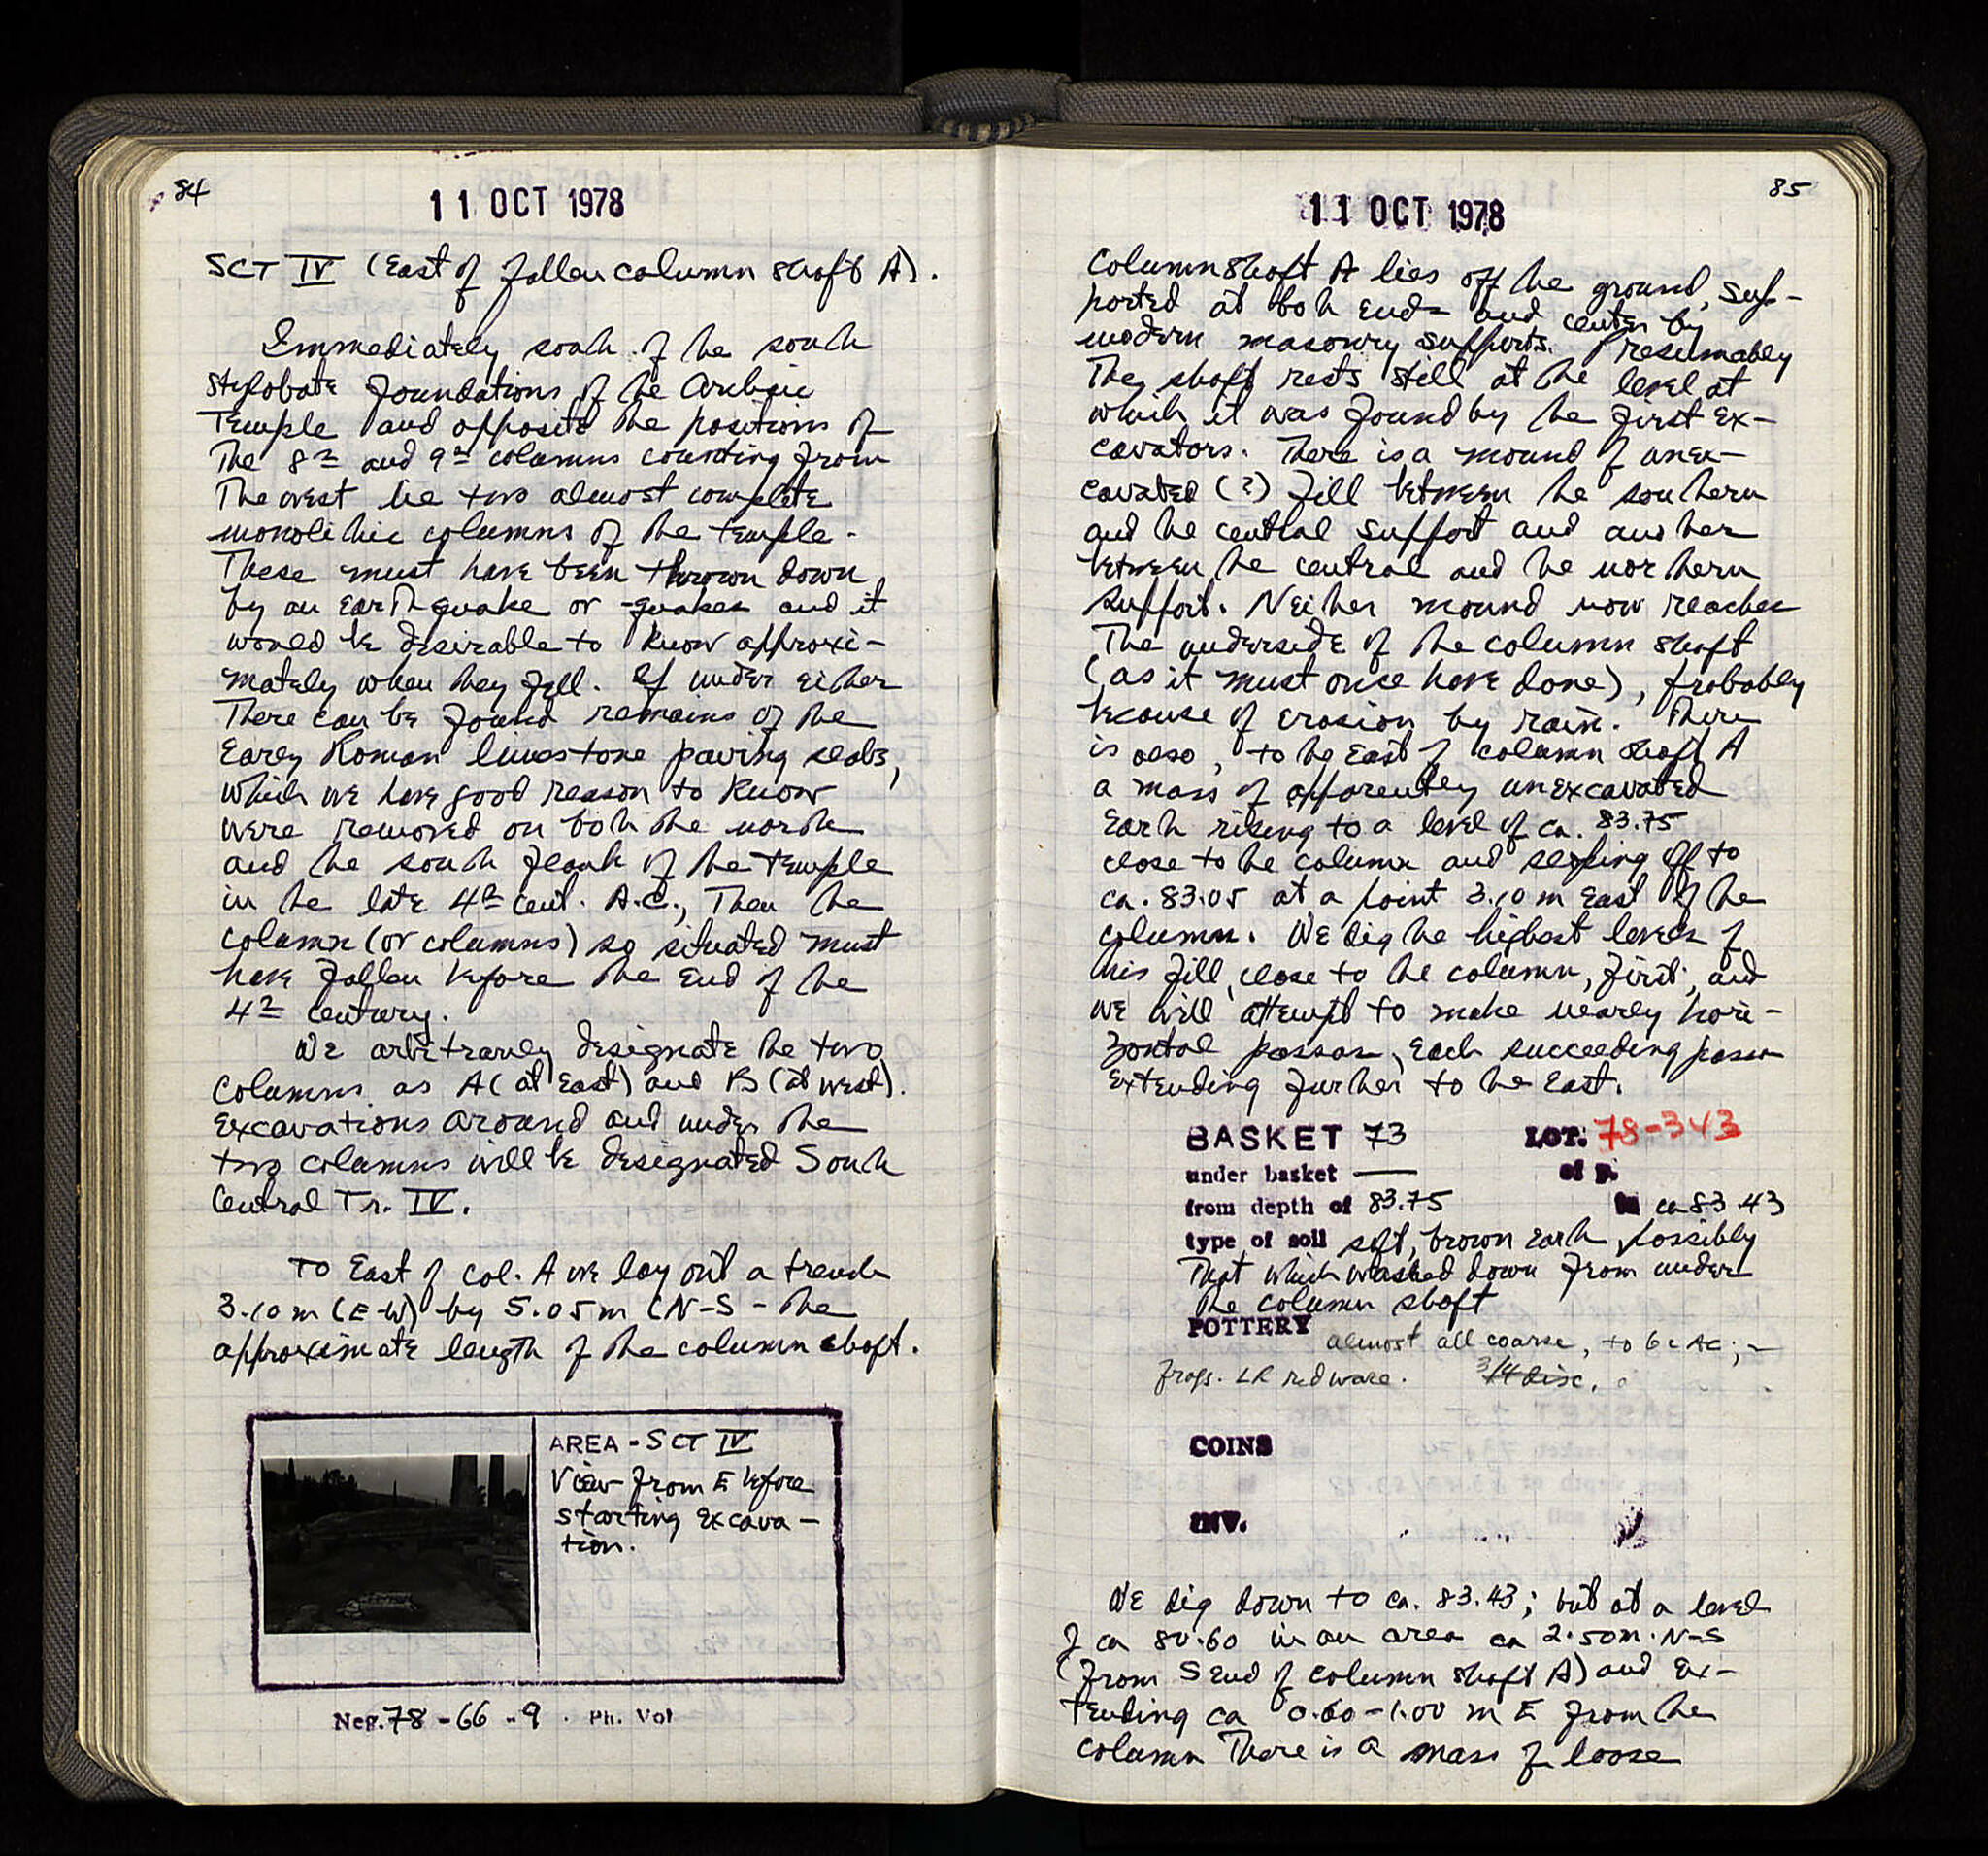 84
11 OCT 1978
SCT IV (East of fallen column shaft A).
Immediately south of the south
stylobate foundations of the archaic
Temple and opposite the positions of
The 8th and 9th columns counting from
The west lie two almost complete
monolithic columns of the temple.
These must have been thrown down
by an earthquake or -quakes and it
would be desirable to know approxi-
mately when they fell. If under either
There can be found remains of the
Early Roman limestone paving slabs,
which we have good reason to know
were removed on both the north
and the south flank of the temple
in the late 4th cent. A.C., Then the
column (or columns) so situated must
have fallen before the end of the
4th century.
We arbitrarily designate the two
columns as A (at east) and B (at west).
Excavations around and under the
two columns will be designated South
Central Tr. IV.
To East of col. A we lay out a trench
3.10 m (E-W) by 5.05 m (N-S - the
approximate length of the column shaft.
AREA - SCT IV
View from E before
starting excava-
tion.
Neg. 78-66-9. Ph. Vol
85
11 OCT 1978
Column shaft A lies off the ground, sup-
ported at both ends and center by
modern masonry supports. Presumably
They shaft rests still at the level at
which it was found by the first ex-
cavators. There is a mound of unex-
cavated (?) fill between the southern
and the central support and another
between the central and the northern
support. Neither mound now reaches
The underside of the column shaft
(as it must once have done), probably
because of erosion by rain. There
is also, to the East of column shaft A
a mass of apparently unexcavated
Earth rising to a level of ca. 83.75
close to the column and sloping off to
ca. 83.05 at a point 3.10 m East of the
column. We dig the highest levels of
this fill, close to the column, first, and
we will attempt to make nearly hori-
zontal passes, each succeeding pass
extending further to the East.
BASKET 73 LOT: 78-343
under basket — of p.
from depth of 83.75 to ca 83.43
type of soil soft, brown earth, possibly
That which washed down from under
the column shaft
POTTERY almost all coarse, to 6c AC; -
frags. LR red ware. 3/4 disc.
COINS
INV.
We dig down to ca. 83.43; but at a level
of ca 83.60 in an area ca 2.50m. N-S
(from S end of column shaft A) and ex-
tending ca 0.60-1.00 m E from the
column There is a mass of loose